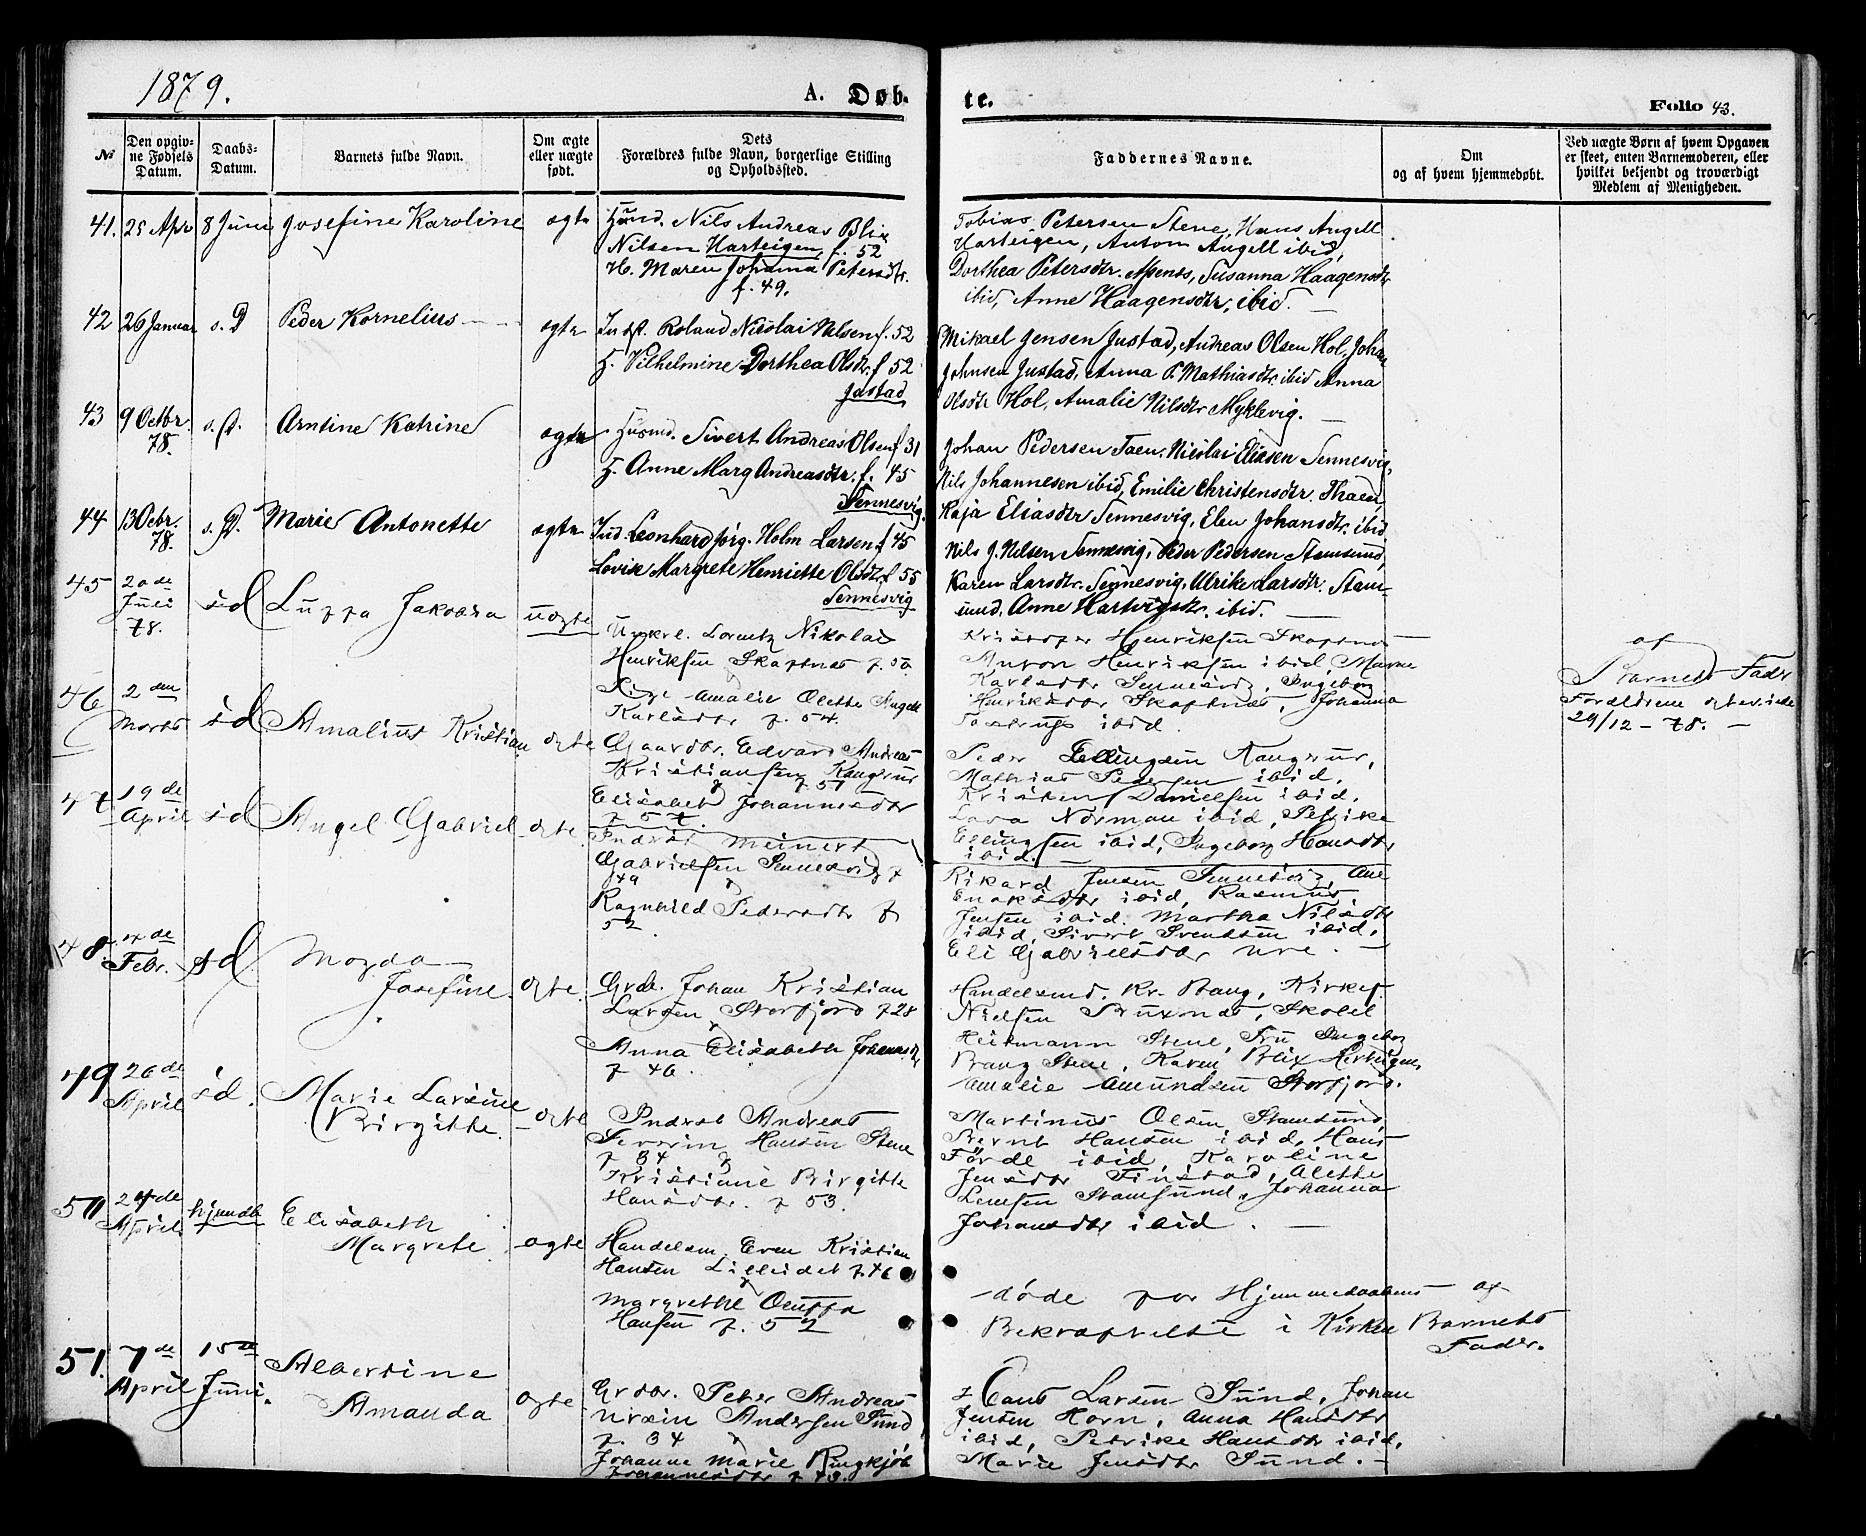 1879.
A. Døb-
te.
Folio 43.
№
Den opgiv-
ne Fødsels
Datum.
Daabs-
Datum.
Barnets fulde Navn.
Om ægte
eller uægte
født.
Dets
Forældres fulde Navn, borgerlige Stilling
og Opholdssted.
Faddernes Navne.
Om
og af hvem hjemmedøbt.
Ved uægte Børn af hvem Opgaven
er skeet, enten Barnemoderen, eller
hvilket bekjendt og troværdigt
Medlem af Menigheden.
41. 25 Apr 8 Juni Josefine Karoline ægte
Nils Andreas Blix
Nilsen Harteigen, f. 52
H. Maren Johanna Petersdtr.
f. 49.
Tobias Petersen Stene, Hans Angell
Harteigen, Anton Angell ibid,
Dorthea Petersdtr. Susanna Haagensdtr
ibid, Anne Haagensdtr, ibid.
42 26 Januar s. D Peder Kornelius ægte
Indst. Roland Nicolai Nilsen f. 52
H. Vilhelmine Dorthea Olsdtr. f 52
Justad
Mikael Jensen Justad, Andreas Olsen Hol, Johan
Johnsen Justad, Anna P. Mathiasdtr ibid Anna
Olsdtr Hol, Amalie Nilsdtr Myklevig.
43 9 Octbr. 78. s. D. Arntine Katrine ægte
Husmd. Sivert Andreas Olsen f 31
H. Anne Marg Andreasdtr. f. 45
Sennesvig.
Johan Pedersen Taen, Nicolai Eliasen Sennesvig,
Nils Johannesen ibid, Emilie Christensdtr. Thaen,
Kaja Eliasdtr Sennesvig, Elen Johansdtr. ibid
44 13 Octbr. 78. s. D. Marie Antonette ægte
Ind. Leonhard Jørg. Holm Larsen f 45
Lovise Margrete Henriette Olsdtr. f 55
Sennesvig
Nils J. Nilsen Sennesvig, Peder Pedersen Stamsund,
Karen Larsdtr. Sennesvig, Ulrike Larsdtr. Stam-
sund, Anne Hartvigsdtr. ibid.
45 20de Juli 78. sd Luppa Jakobia uægte
Ungkrl. Lorentz Nikolai
Henriksen Skaftnæs f. 50.
Pige Amalie Olette Angell
Karlsdtr f. 54.
Kristofer Henriksen Skaftnæs
Anton Henriksen ibid
Karlsdtr Sennesvig, Ingeborg
Henriksdtr Skaftnæs, Johanna
ibid.
af
Barnets Fader
Forældrene
29/12 - 78.
46 2den Marts sd Amalius Kristian ægte
Gaardbr. Edvard Andreas
Kristiansen
f 51
Elisabet Johannesdtr
f 57.
Peder Ellingsen
Mathias Pedersen ibid,
Kristen Danielsen ibid,
Lava Norman ibid, Petrike
Ellingsen ibid, Ingeborg Hansdtr
ibid.
47 19de April sd Angel Gabriel ægte.
Inderst Meinert
Gabrielsen Sennesvig f
49
Ragnhild Pedersdtr f
52.
Rikard Jensen Sennesvig, Ane
ibid, Rasmus
Jensen ibid, Martha Nilsdtr
ibid, Sivert Svendsen ibid,
Eli Gabrielsdtr Ure.
48. 4de Febr. sd. Magda
Josefine. ægte.
Grdb. Johan Kristian
Larsen Storfjord f 28
Anna Elisabeth Johansdtr
f 46.
Handelsmd. Kr. Bang, Kirkes.
Nielsen Buxnæs, Skolel
Heitmann Stene, Fru Ingeborg
Bang Stene, Karen Blix Harteigen,
Amalie Amundsen Storfjord.
49 26de April sd. Marie Larsine
Birgitte. ægte
Inderst Andreas
Severin Hansen Stene
f 34
Kristiane Birgitte
Hansdtr. f 53.
Martinus Olsen Stamsund,
Bernt Hansen ibid, Hans
Førde ibid, Karoline
Jensdtr Finstad, Alette
Lensen Stamsund, Johanna
Johansdtr ibid.
50 24de April hjemdb. Elisabeth
Margrete. ægte
Handelsm. Even Kristian
Hansen Lilleidet f. 46
Margrethe
Hansen f. 52
døde før Hjemmedaabens
Bekræftelse i Kirken
af
Barnets
Fader.
51. 7de April 15de Juni. Albertine
Amanda ægte
Grdbr. Peter Andreas
Ursin Andersen Sund
f. 34
Johanne Marie Ringkjøb
Johannesdtr f 43.
Claus Larsen Sund, Johan
Jensen Horn, Anna Hansdtr
ibid, Petrike Hansdtr ibid,
Marie Jensdtr Sund.